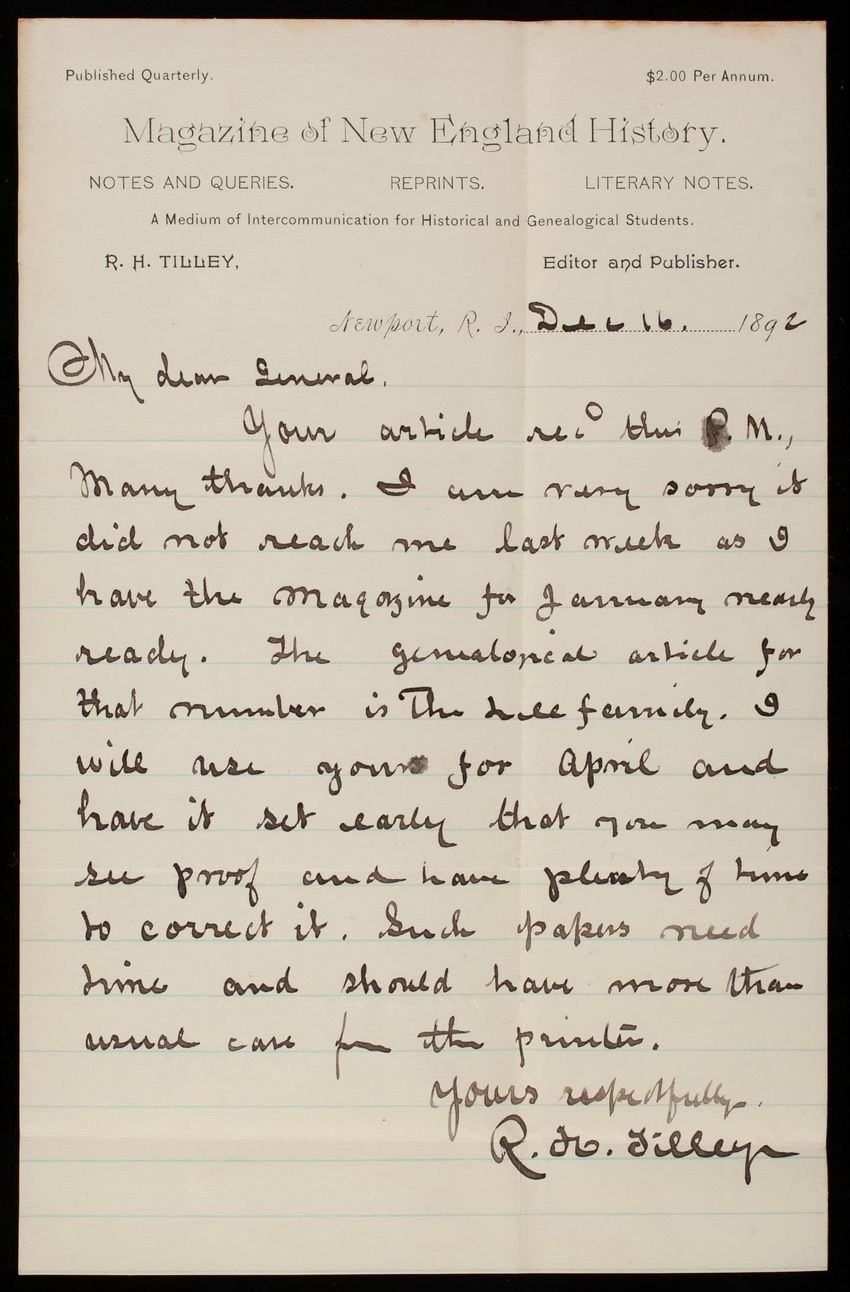 Published Quarterly. $2.00 Per Annum.
Magazine of New England History.
NOTES AND QUERIES. REPRINTS. LITERARY NOTES.
A Medium of Intercommunication for Historical and Genealogical Students.
R. H. TILLEY, Editor and Publisher.
Newport, R. I., Dec 16. 1892
My dear General,
Your article recd this P. M.,
Many thanks. I am very sorry it
did not reach me last week as I
have the Magazine for January nearly
ready. The genealogical article for
that number is The family. I
will use yours for April and
have it set early that you may
see proof and have plenty of time
to correct it. Such papers need
time and should have more than
usual care from the printer.
Yours respectfully.
R. H. Tilley